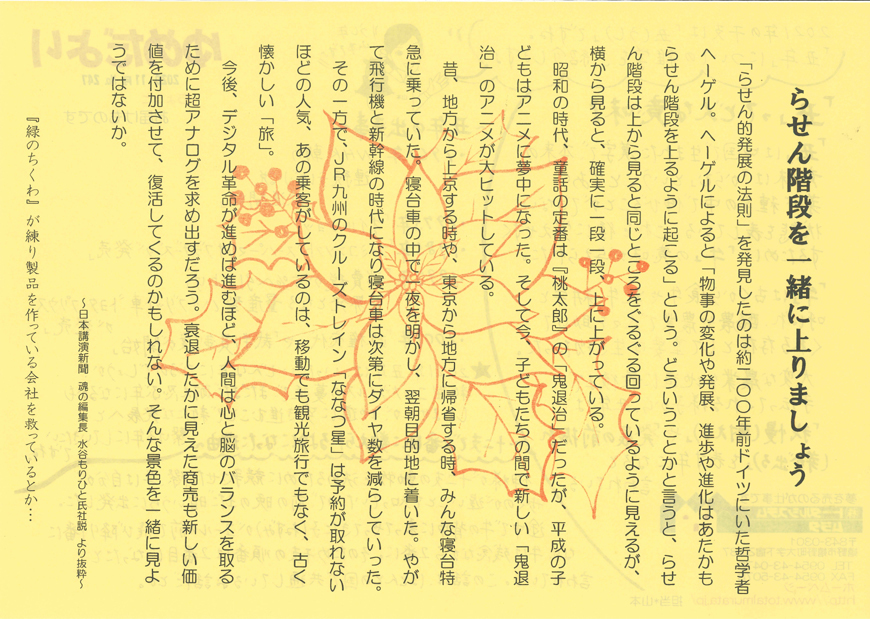 らせん階段を一緒に上りましょう
「らせん的発展の法則」を発見したのは約二〇〇年前ドイツにいた哲学者
ヘーゲル。ヘーゲルによると「物事の変化や発展、進歩や進化はあたかも
らせん階段を上るように起こる」という。どういうことかと言うと、らせ
ん階段は上から見ると同じところをぐるぐる回っているように見えるが、
横から見ると、確実に一段一段、上に上がっている。
昭和の時代、童話の定番は『桃太郎』の「鬼退治」だったが、平成の子
どもはアニメに夢中になった。そして今、子どもたちの間で新しい「鬼退
治」のアニメが大ヒットしている。
昔、地方から上京する時や、東京から地方に帰省する時、みんな寝台特
急に乗っていた。寝台車の中で一夜を明かし、翌朝目的地に着いた。やが
て飛行機と新幹線の時代になり寝台車は次第にダイヤ数を減らしていった。
その一方で、JR九州のクルーズトレイン「ななつ星」は予約が取れない
ほどの人気、あの乗客がしているのは、移動でも観光旅行でもなく、古く
懐かしい「旅」。
今後、デジタル革命が進めば進むほど、人間は心と脳のバランスを取る
ために超アナログを求め出すだろう。衰退したかに見えた商売も新しい価
値を付加させて、復活してくるのかもしれない。そんな景色を一緒に見よ
うではないか。
～日本講演新聞　魂の編集長　水谷もりひと氏社説　より抜粋～
『緑のちくわ』が練り製品を作っている会社を救っているとか…